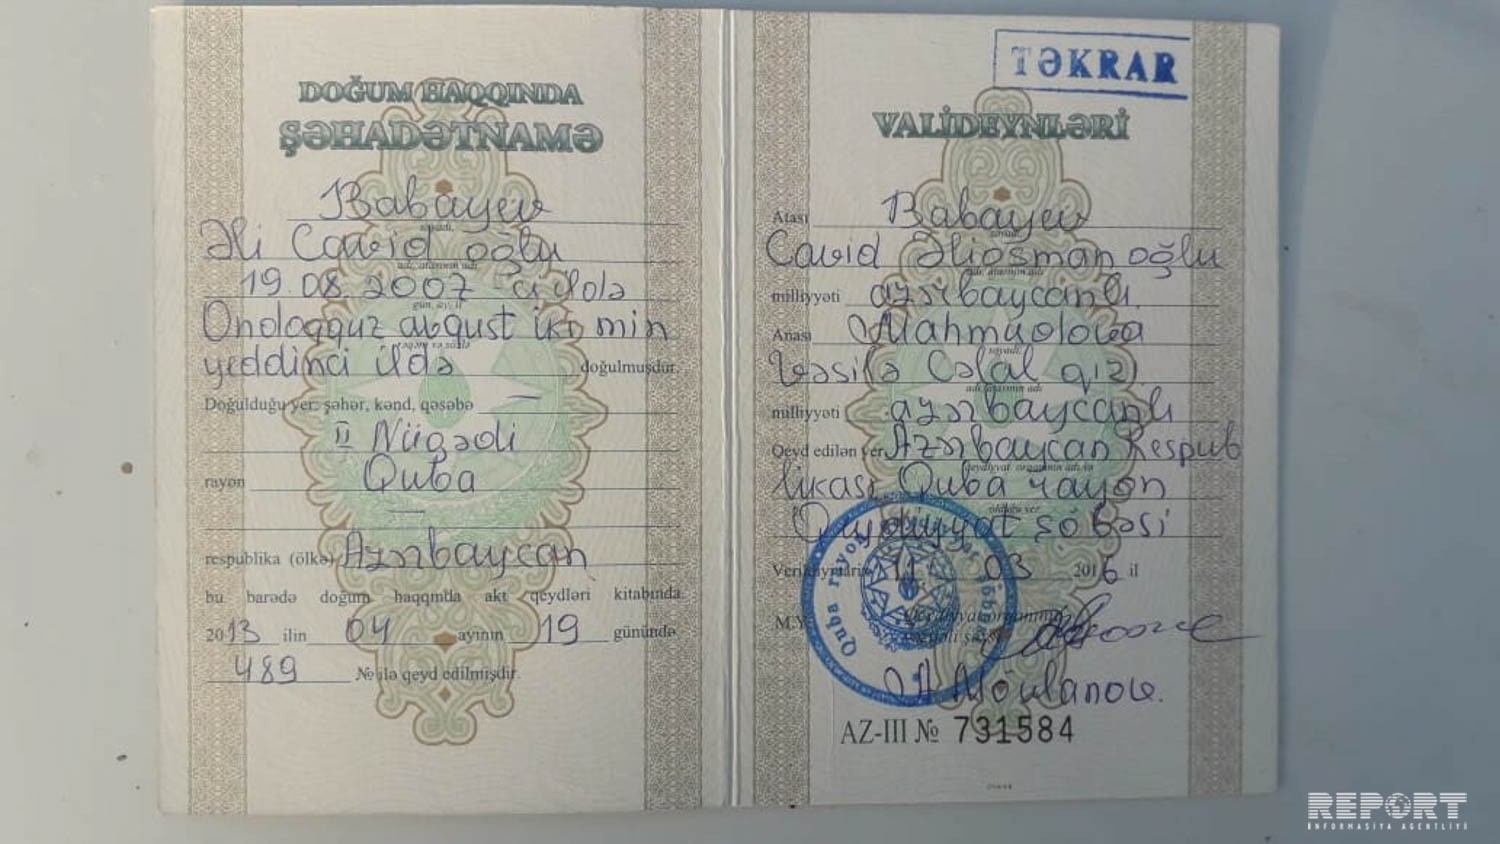 DOĞUM HAQQINDA
ŞƏHADƏTNAMƏ
Babayev
soyadı,
Əli Cavid oğlu
adı, atasının adı
19.08.2007-ci ildə
gün, ay, il
Ondoqquz avqust iki min
rəqəm və sözlə
yeddinci ildə doğulmuşdur.
Doğulduğu yer: şəhər, kənd, qəsəbə —
II Nügədi
rayon Quba
—
respublika (ölkə) Azərbaycan
bu barədə doğum haqqında akt qeydləri kitabında
2013 ilin 04 ayının 19 günündə
489 № ilə qeyd edilmişdir.
TƏKRAR
VALİDEYNLƏRİ
Atası Babayev
soyadı,
Cavid Əliosman oğlu
adı, atasının adı
milliyyəti azərbaycanlı
Anası Mahmudova
soyadı,
Vəsilə Cəlal qızı
adı, atasının adı
milliyyəti azərbaycanlı
Qeyd edilən yer Azərbaycan Respub
qeydiyyat orqanının adı və
likası Quba rayon
olduğu yer
Qeydiyyat şöbəsi
11 03 2016 il
M.Y.
Quba rayon
AZ-III № 731584
REPORT
İNFORMASİYA AGENTLİYİ